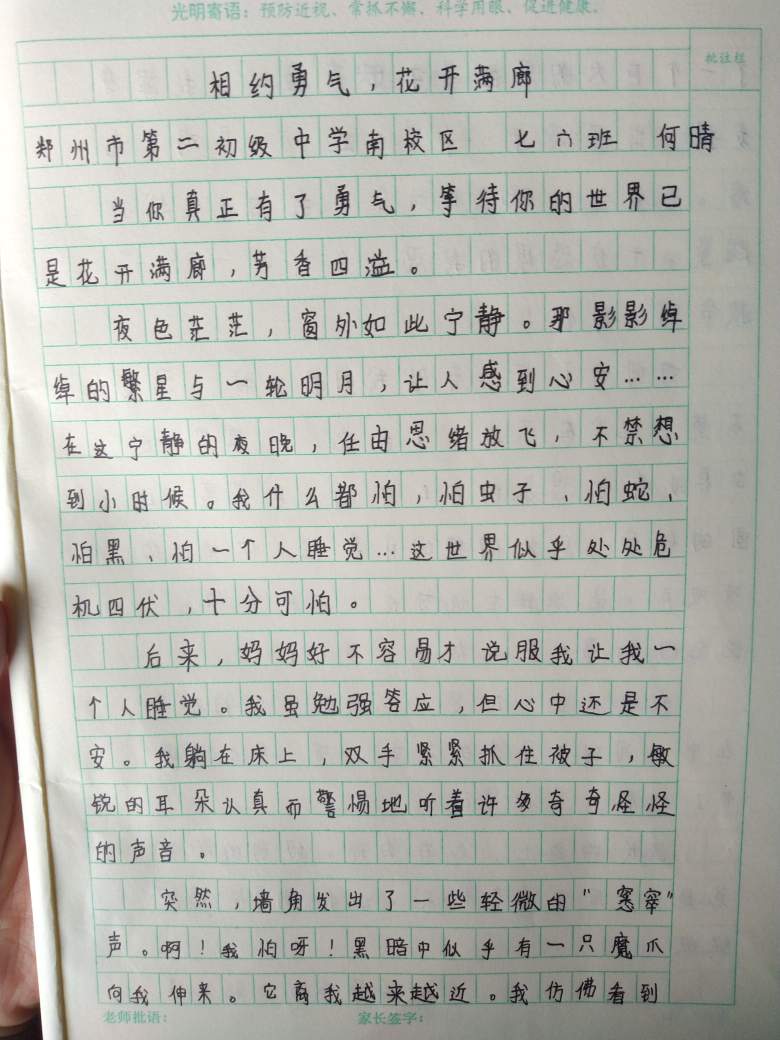 光明寄语：预防近视、常抓不懈、科学用眼、促进健康。
批注栏
相约勇气，花开满廊
郑州市第二初级中学南校区 七六班 何晴
当你真正有了勇气，等待你的世界已
是花开满廊，芳香四溢。
夜色茫茫，窗外如此宁静。那影影绰
绰的繁星与一轮明月，让人感到心安……
在这宁静的夜晚，任由思绪放飞，不禁想
到小时候。我什么都怕，怕虫子、怕蛇、
怕黑、怕一个人睡觉…这世界似乎处处危
机四伏，十分可怕。
后来，妈妈好不容易才说服我让我一
个人睡觉。我虽勉强答应，但心中还是不
安。我躺在床上，双手紧紧抓住被子，敏
锐的耳朵认真而警惕地听着许多奇奇怪怪
的声音。
突然，墙角发出了一些轻微的“窸窣”
声。啊！我怕呀！黑暗中似乎有一只魔爪
向我伸来。它离我越来越近。我仿佛看到
老师批语： 家长签字：